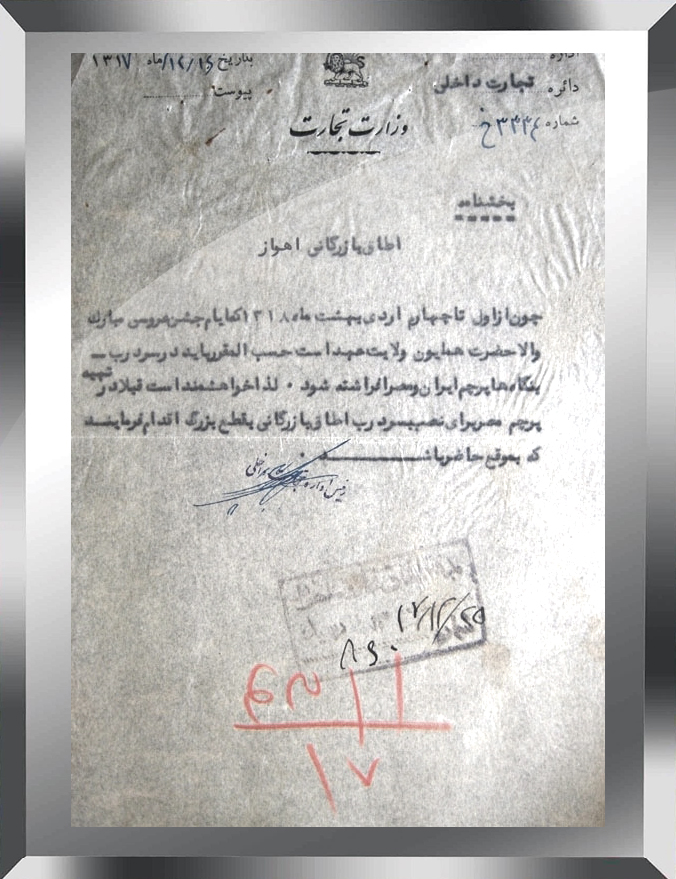 اداره
دائره تجارت داخلی
شماره ۳۳۴۴۶ خ
بتاریخ ۱۶/۱۲/ماه ۱۳۱۷
پیوست
وزارت تجارت
بخشنامه
اطاق بازرگانی اهواز
چون از اول تا چهارم اردی بهشت ماه ۱۳۱۸ که ایام جشن عروسی مبارک
والا حضرت همایون ولایت عهد است حسب المقرر باید در سر درب
بنگاه ها پرچم ایران و مصر افراشته شود . لذا خواهشمند است قبلا در تهیه
پرچم مصر برای نصب بسر درب اطاق بازرگانی بقطع بزرگ اقدام فرمایند
که بموقع حاضر باشد .
رئیس اداره تجارت داخلی
۱۷/۱۲/۲۵
۸۶۰
۱۷